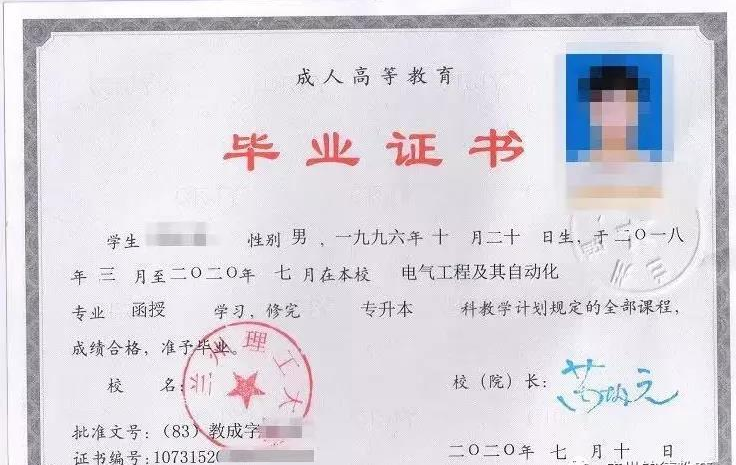 成人高等教育
毕业证书
学生 性别 男 ，一九九六年 十 月二十 日生，于二〇一八
年 三 月至二〇二〇年 七 月在本校 电气工程及其自动化
专业 函授 学习，修完 专升本 科教学计划规定的全部课程，
成绩合格，准予毕业。
校 名： 校（院）长：
兰 理工大
批准文号：（83）教成字
证书编号：10731520 二〇二〇年 七 月 十 日